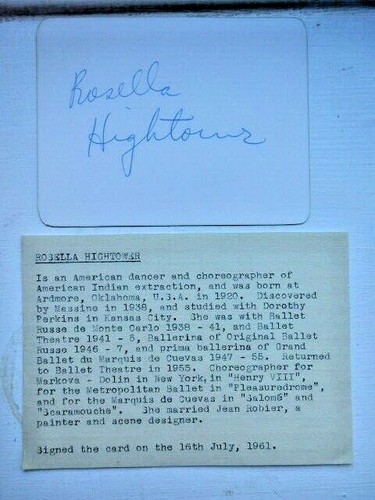 Rosella
Hightower
ROSELLA HIGHTOWER
Is an American dancer and choreographer of
American Indian extraction, and was born at
Ardmore, Oklahoma, U.S.A. in 1920. Discovered
by Massine in 1938, and studied with Dorothy
Perkins in Kansas City. She was with Ballet
Russe de Monte Carlo 1938 - 41, and Ballet
Theatre 1941 - 5, Ballerina of Original Ballet
Russo 1946 - 7, and prima ballerina of Grand
Ballet du Marquis de Cuevas 1947 - 55. Returned
to Ballet Theatre in 1955. Choreographer for
Markova - Dolin in New York, in "Henry VIII",
for the Metropolitan Ballet in "Pleasuredrome",
and for the Marquis de Cuevas in "Salomé" and
"Scaramouche". She married Jean Robier, a
painter and scene designer.
Signed the card on the 16th July, 1961.